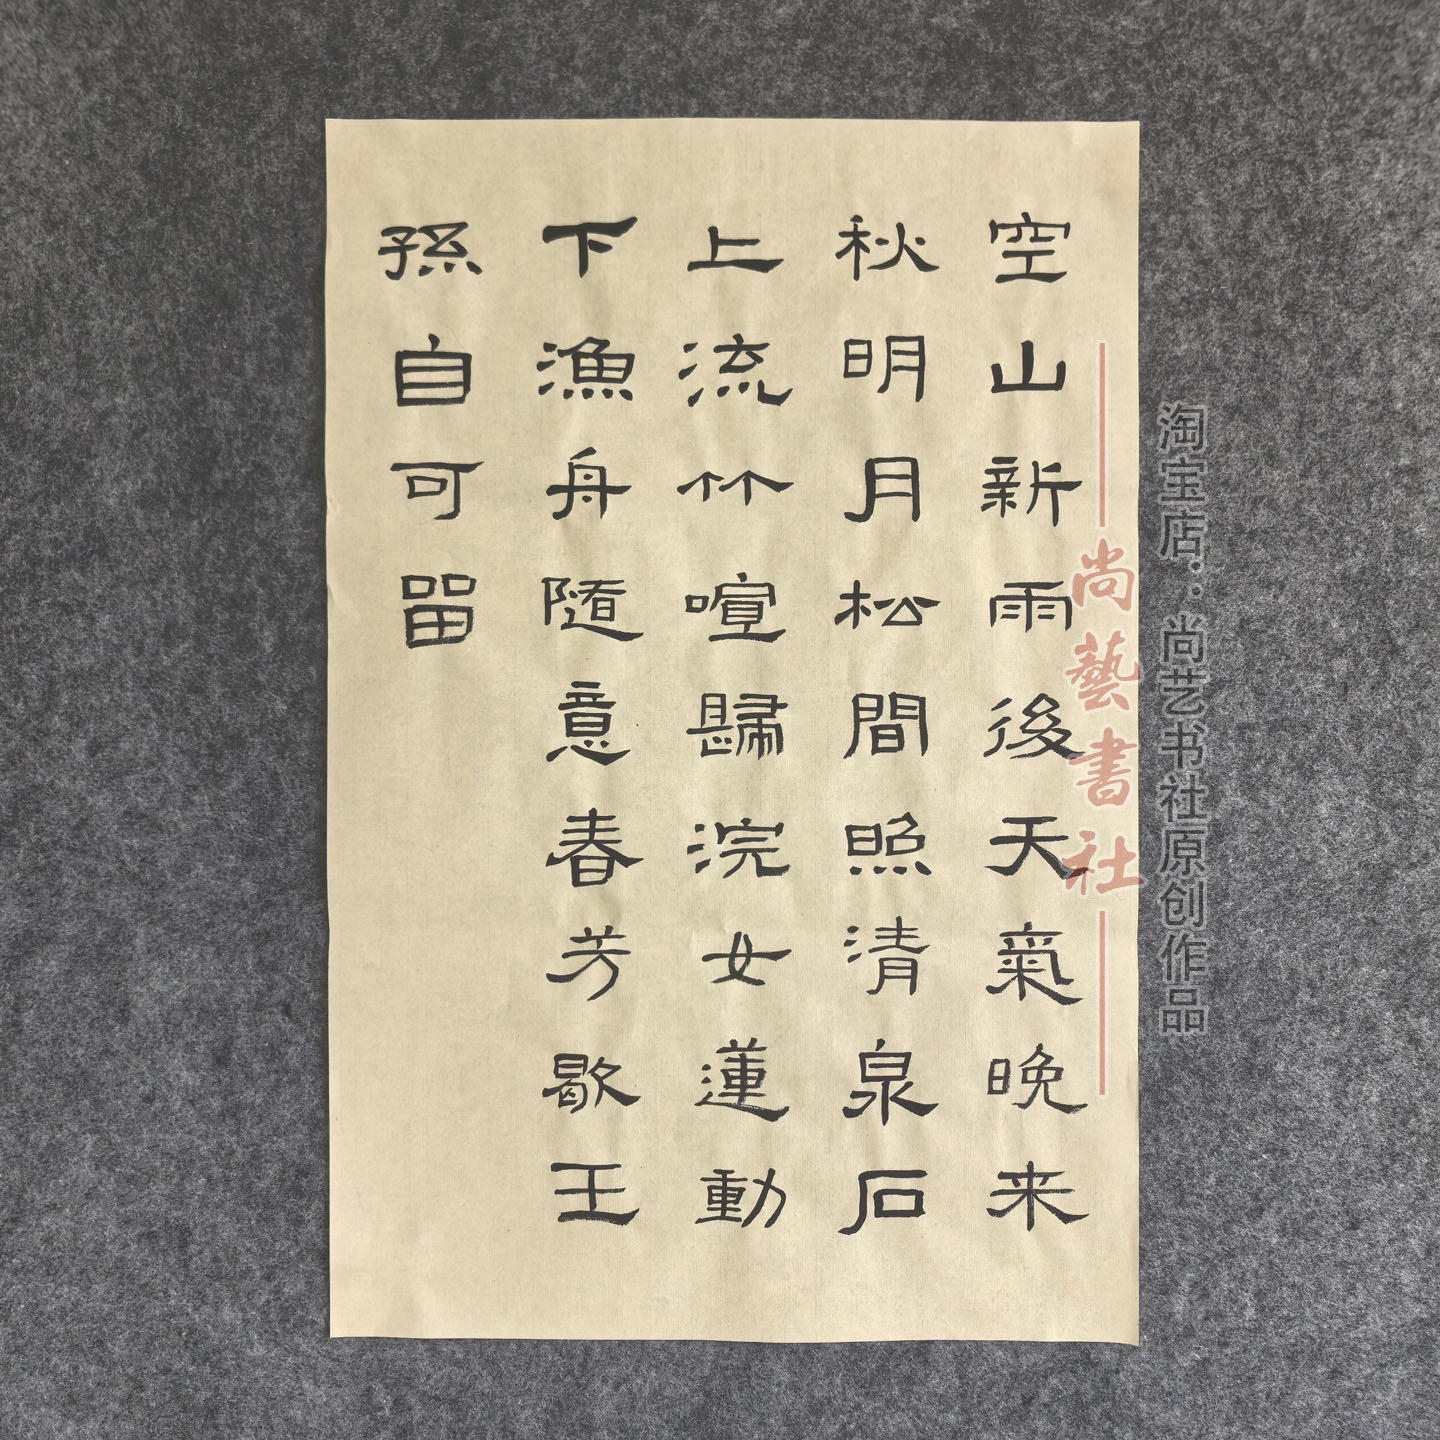 空山新雨後天氣晚来
秋明月松間照清泉石
上流竹喧歸浣女蓮動
下漁舟随意春芳歇王
孫自可留
尚藝書社
淘宝店：尚艺书社原创作品